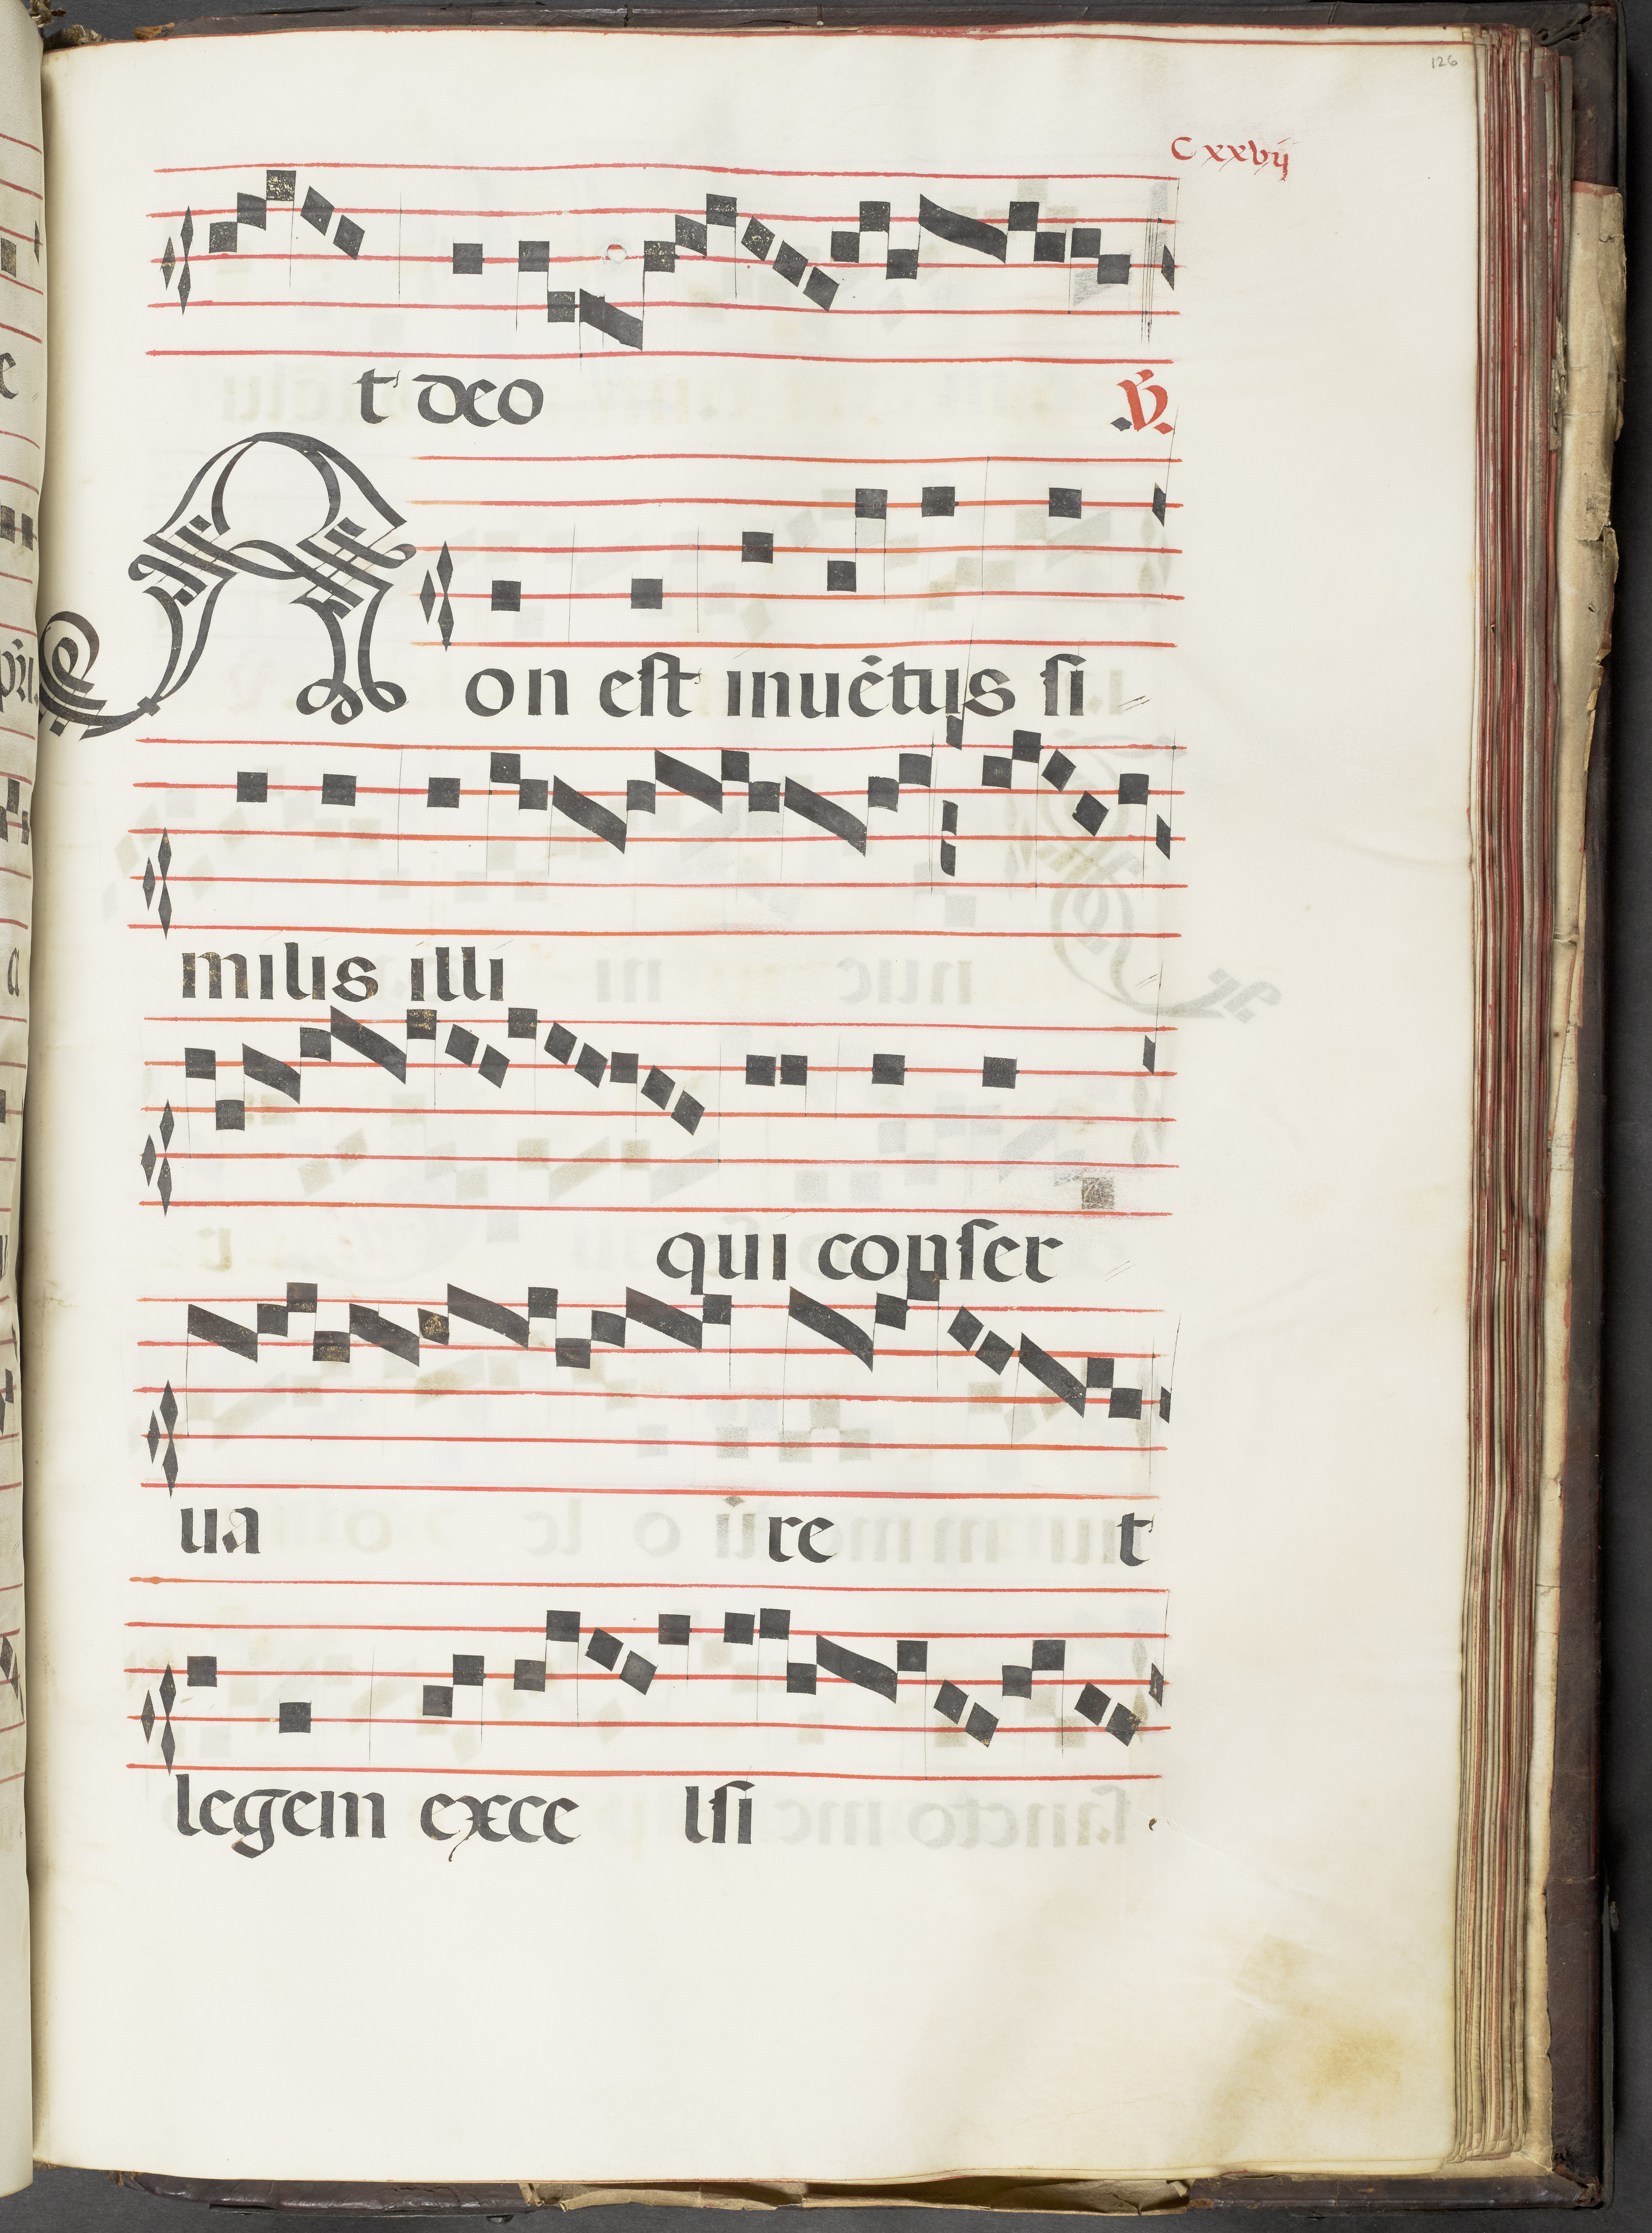 126
Cxxvij
t deo ℣.
Non est inuētus si
milis illi
qui conser
ua re t
legem exce lsi